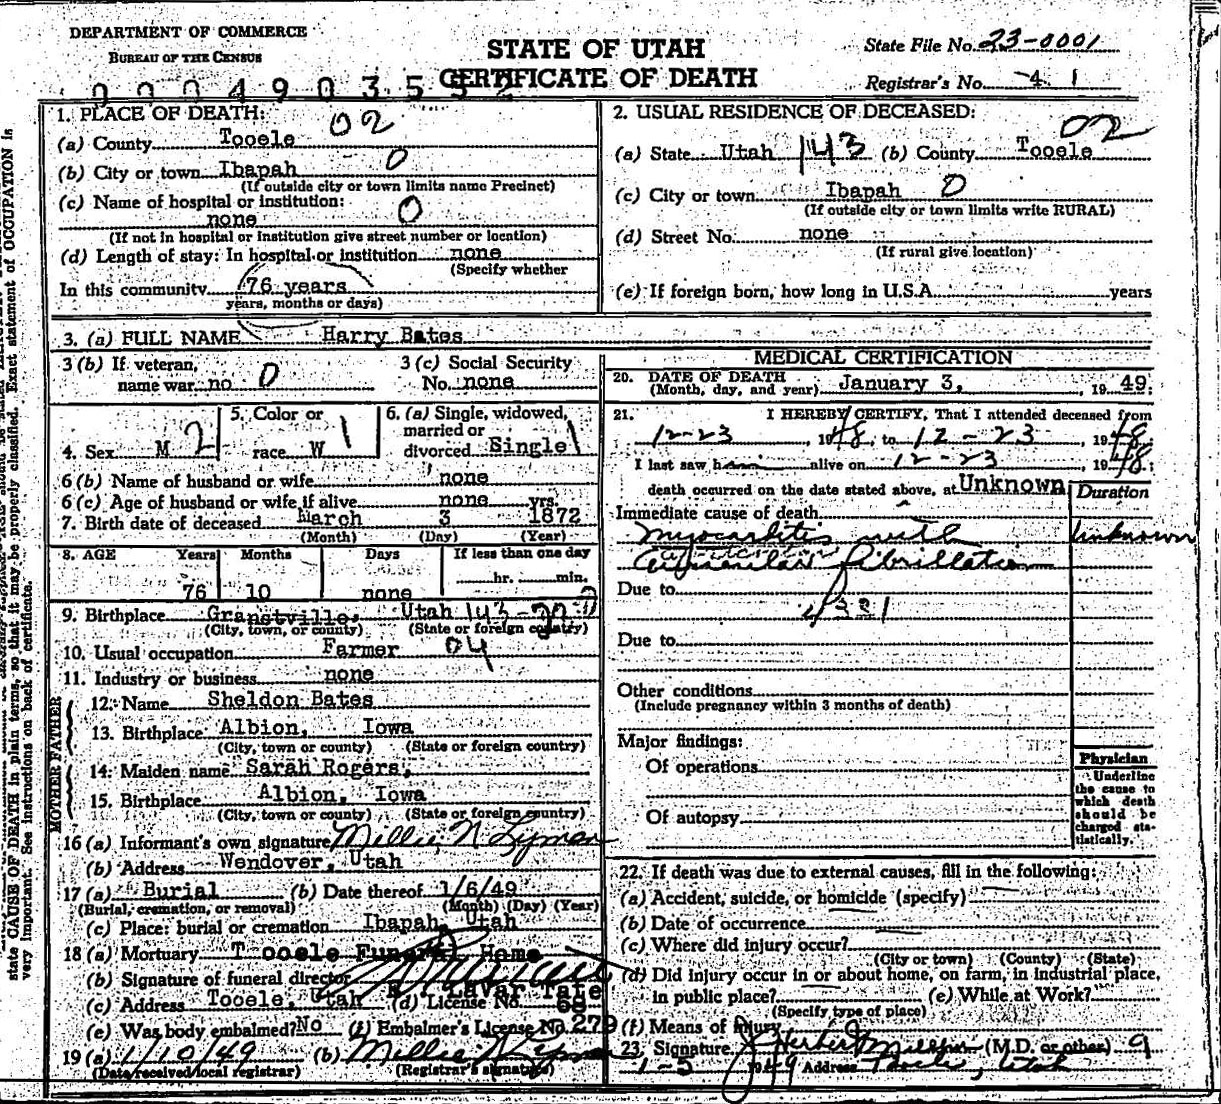 DEPARTMENT OF COMMERCE
BUREAU OF THE CENSUS
STATE OF UTAH
CERTIFICATE OF DEATH
State File No. 23-0001
Registrar's No. 4 1
0 0 0 4 9 0 3 5 5 2
1. PLACE OF DEATH: 02
(a) County Tooele
(b) City or town Ibapah 0
(If outside city or town limits name Precinct)
(c) Name of hospital or institution:
none 0
(If not in hospital or institution give street number or location)
(d) Length of stay: In hospital or institution none
(Specify whether
In this community 76 years
years, months or days)
2. USUAL RESIDENCE OF DECEASED: 02
(a) State Utah 143 (b) County Tooele
(c) City or town Ibapah 0
(If outside city or town limits write RURAL)
(d) Street No. none
(If rural give location)
(e) If foreign born, how long in U.S.A. years
3. (a) FULL NAME Harry Bates
3 (b) If veteran,
name war no 0
3 (c) Social Security
No. none
4. Sex M 2
5. Color or
race W 1
6. (a) Single, widowed,
married or
divorced Single 1
6 (b) Name of husband or wife none
6 (c) Age of husband or wife, if alive none yrs.
7. Birth date of deceased March 3 1872
(Month) (Day) (Year)
8. AGE Years Months Days If less than one day
76 10 none hr. min.
9. Birthplace Granstville, Utah 143-
(City, town, or county) (State or foreign country)
10. Usual occupation Farmer 04
11. Industry or business none
FATHER
12. Name Sheldon Bates
13. Birthplace Albion, Iowa
(City, town or county) (State or foreign country)
MOTHER
14. Maiden name Sarah Rogers,
15. Birthplace Albion, Iowa
(City, town or county) (State or foreign country)
16 (a) Informant's own signature Millie N Lyman
(b) Address Wendover, Utah
17 (a) Burial (b) Date thereof 1/6/49
(Burial, cremation, or removal) (Month) (Day) (Year)
(c) Place: burial or cremation Ibapah, Utah
18 (a) Mortuary Tooele Funeral Home
(b) Signature of funeral director LaVar Tate
(c) Address Tooele, Utah (d) License No. 68
(e) Was body embalmed? No (f) Embalmer's License No. 279
19 (a) 1/10/49 (b) Millie N Lyman
(Date received local registrar) (Registrar's signature)
MEDICAL CERTIFICATION
20. DATE OF DEATH
(Month, day, and year) January 3, 1949.
21. I HEREBY CERTIFY, That I attended deceased from
12-23, 1948, to 12-23, 1948.
I last saw him alive on 12-23, 1948;
death occurred on the date stated above, at Unknown
Duration
Immediate cause of death
Myocarditis with Unknown
Auricular fibrillation
Due to
Due to
Other conditions
(Include pregnancy within 3 months of death)
Major findings:
Of operations
Of autopsy
Physician
Underline
the cause to
which death
should be
charged sta-
tistically.
22. If death was due to external causes, fill in the following:
(a) Accident, suicide, or homicide (specify)
(b) Date of occurrence
(c) Where did injury occur?
(City or town) (County) (State)
(d) Did injury occur in or about home, on farm, in industrial place,
in public place? (e) While at Work?
(Specify type of place)
(f) Means of injury
23. Signature J Herbert Millburn (M.D. or other) 9
1-5 1949 Address Tooele, Utah
state CAUSE OF DEATH in plain terms, so that it may be properly classified. Exact statement of OCCUPATION is
very important. See instructions on back of certificate.